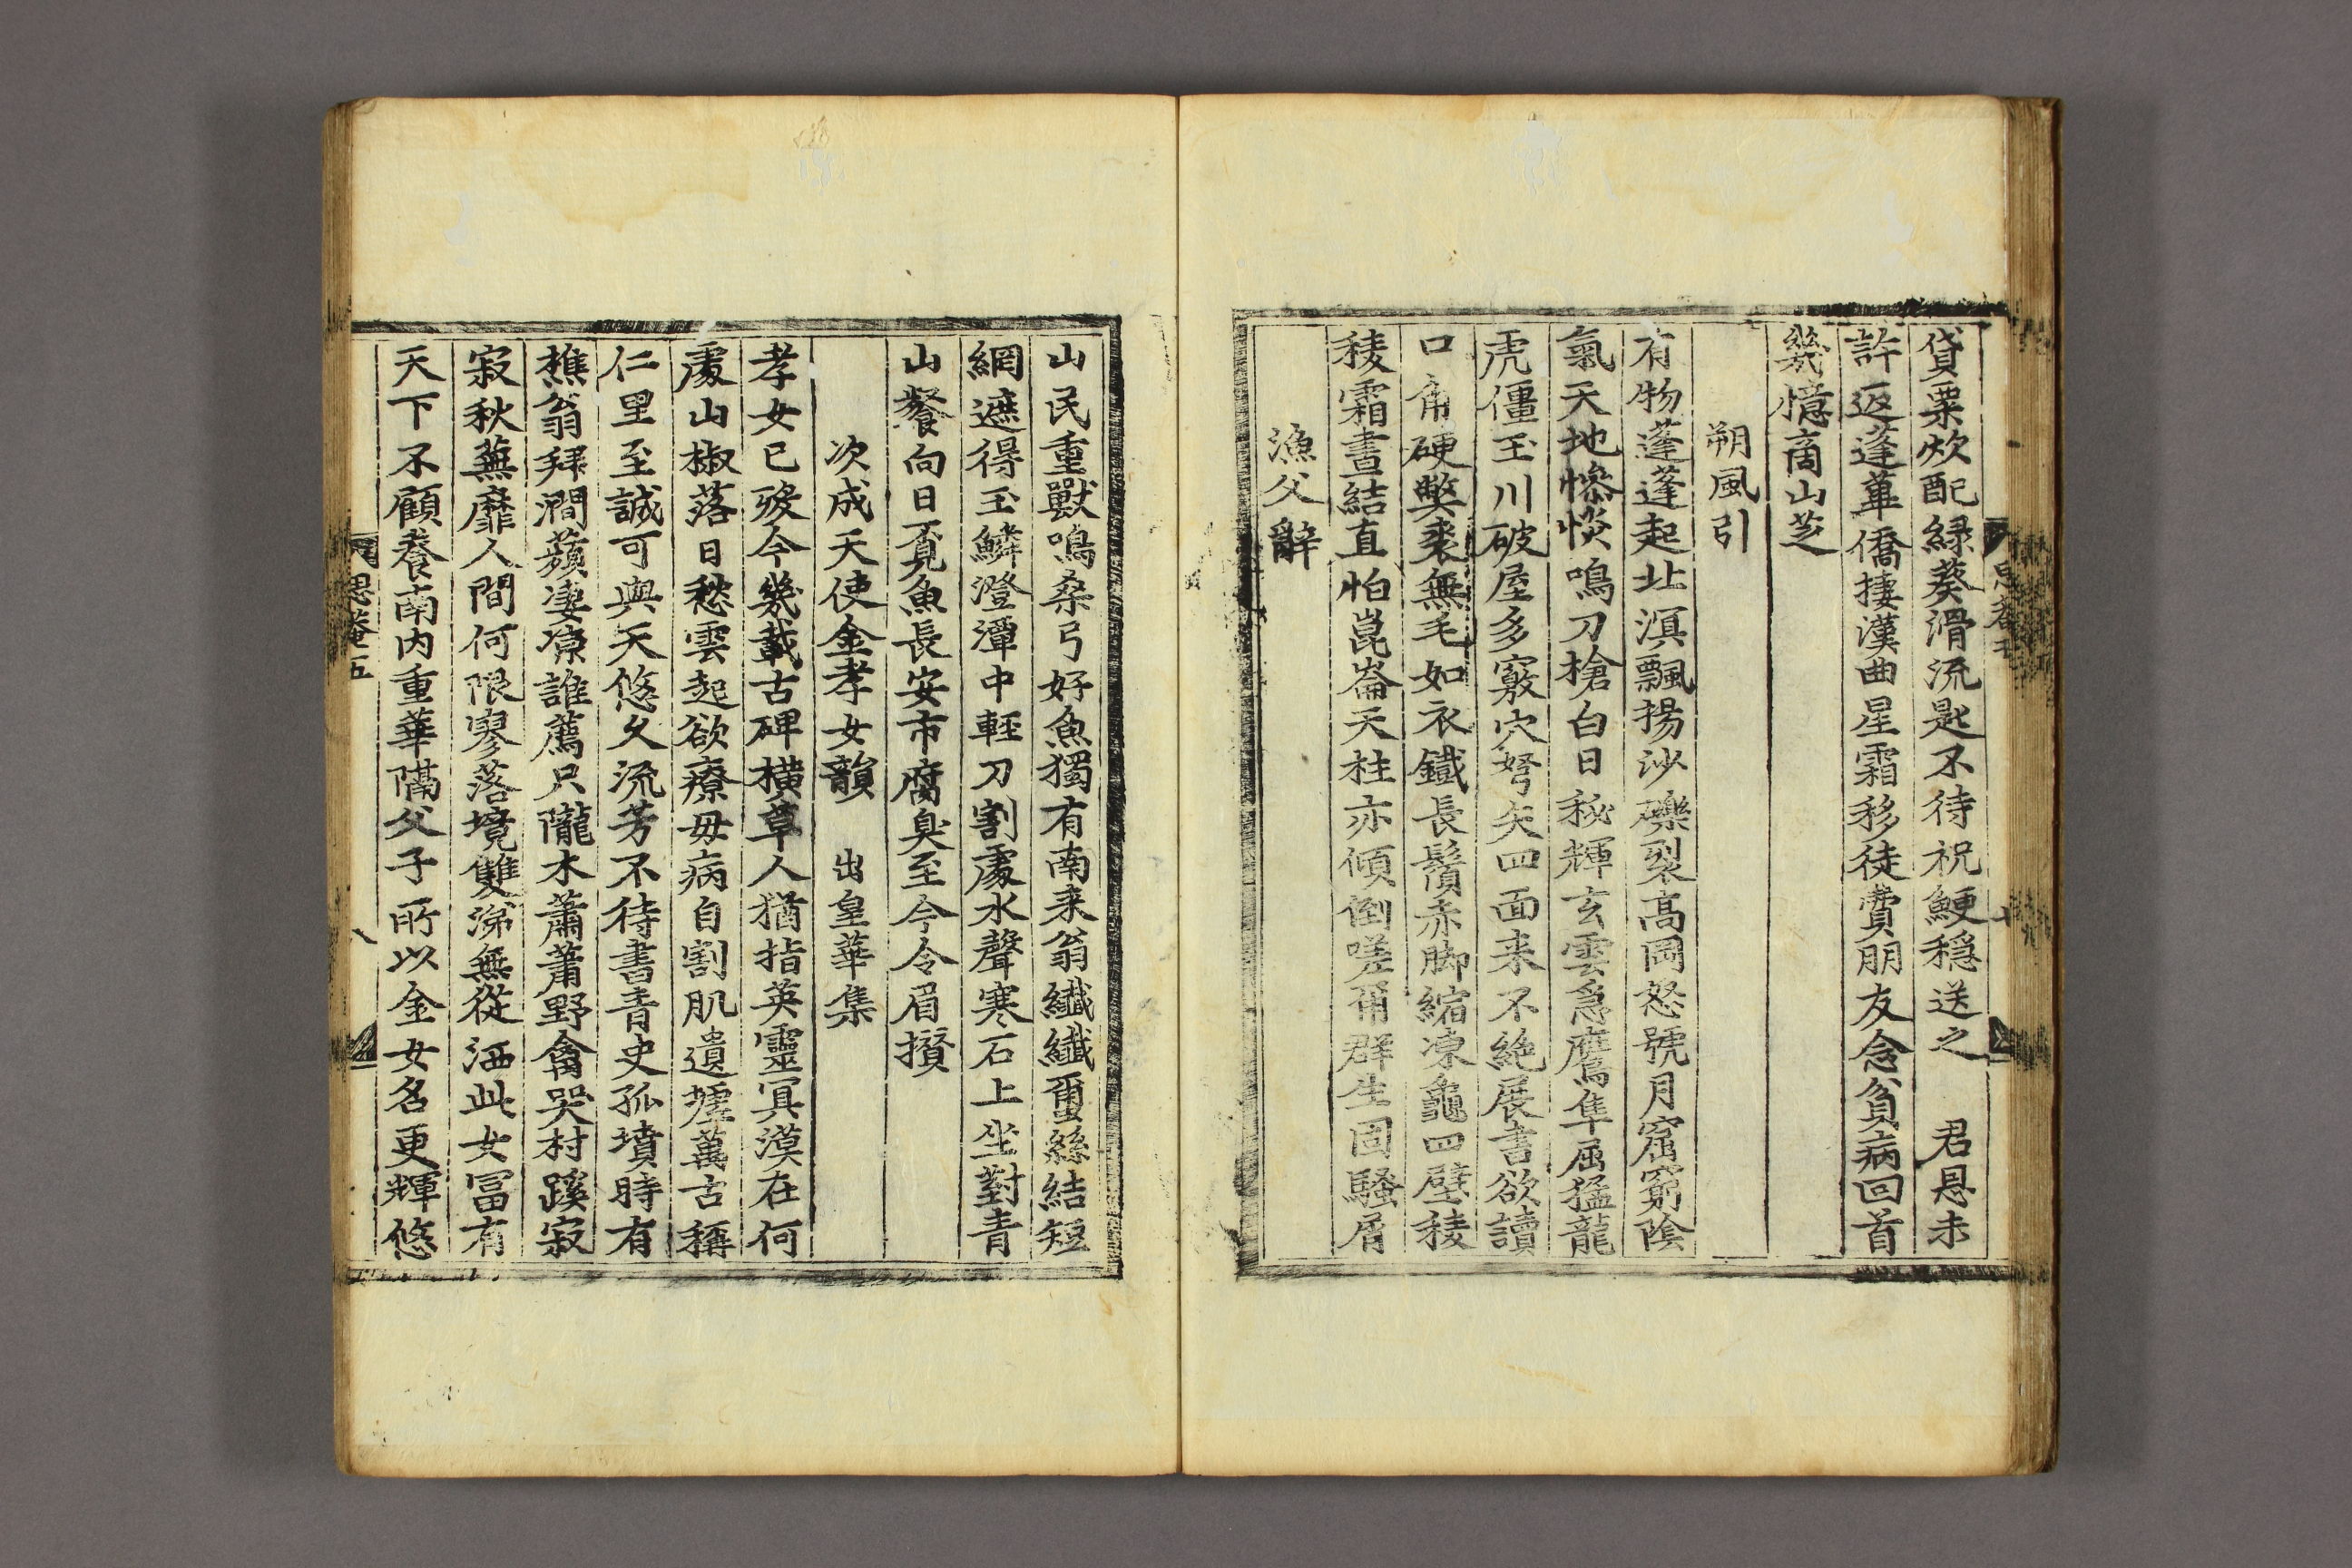 貸粟炊配緑葵滑流匙不待祝鯁穩送之　君恩未
許返蓬蓽僑捿漢曲星霜移徒費朋友念貧病回首
幾憶商山芝
朔風引
有物蓬蓬起北溟飄揚沙礫裂高岡怒號月窟窮陰
氣天地慘惔鳴刀槍白日秘輝玄雲急鷹隼屈猛龍
虎僵玉川破屋多竅穴弩矢四面来不絶展書欲讀
口角硬獘裘無毛如衣鐵長鬚赤脚縮凍龜四壁稜
稜霜晝結直怕崑崙天柱亦傾倒嗟爾群生固騷屑
漁父辭
山民重獸鳴桑弓好魚獨有南来翁纖纖蠒絲結短
網遮得玉鱗澄潭中輕刀割處水聲寒石上坐對青
山餐向日覔魚長安市腐臭至今令眉攅
次成天使金孝女韻　出皇華集
孝女已歿今幾載古碑横草人猶指英靈冥漠在何
處山椒落日愁雲起欲療毋病自割肌遺墟萬古稱
仁里至誠可與天悠久流芳不待書青史孤墳時有
樵翁拜澗蘋凄凉誰薦只隴水蕭蕭野禽哭村蹊寂
寂秋蕪靡人間何限寥落境雙涕無從洒此女冨有
天下不顧養南内重華隔父子所以金女名更輝悠
思菴五